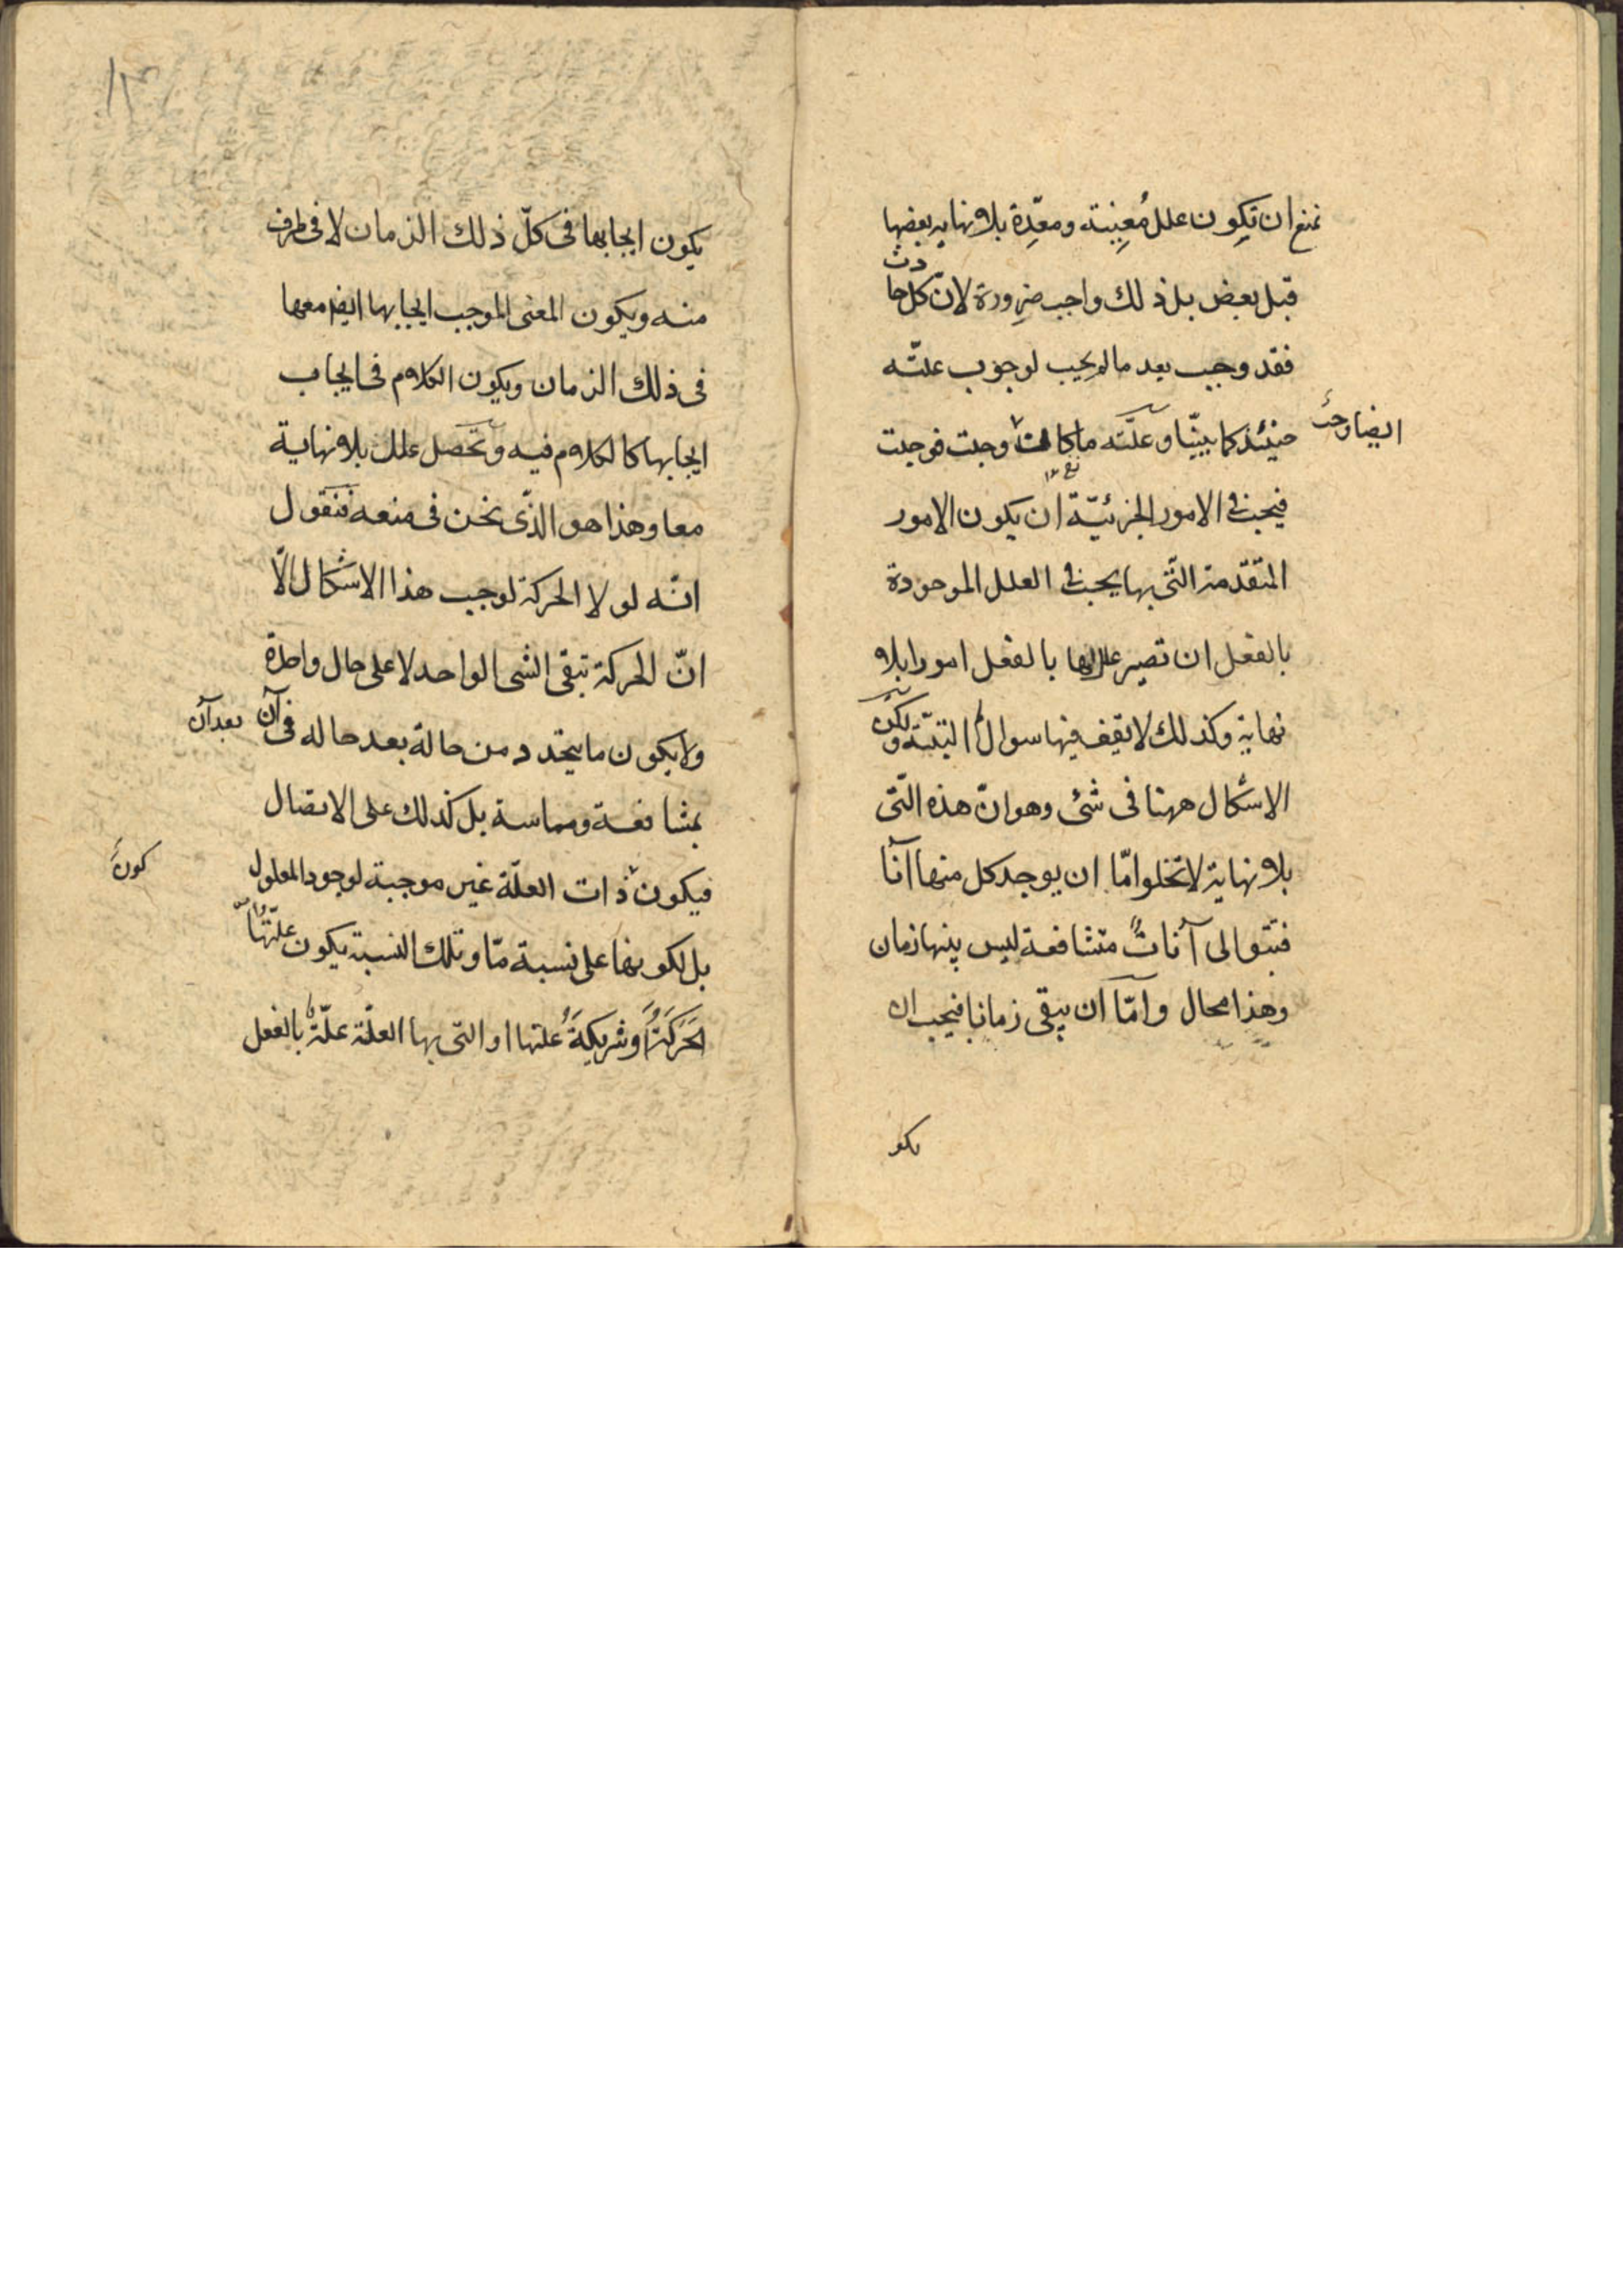 نمنع ان تكون علل مُعِينة ومعِّدة بلا نهاية بعضها
قبل بعض بل ذلك واجب ضرورة لانّ كل حادث
فقد وجب بعد ما لم يجب لوجوب علتّه
حينئذ كما بينّا وعلّته ما كانت ايضا وجبت فوجبت
فيجب في الامور الجزئيّة ان يكون الامور
المتقدّمة التّى بها يجب في العلل الموجودة
بالفعل ان تصير عللها بالفعل امورا بلا
نهاية وكذلك لا تقف فيها سوال البتّة ولكنّ
الاشكال ههنا فى شئ وهو انّ هذه التّى
بلا نهاية لا تخلوا امّا ان يوجد كل منها آنًا
فتتوالى آنات متشافعة ليس بينها زمان
وهذا محال وامّا ان يبقى زمانا فيجب ان
يكو
١٣
يكون ايجابها فى كلّ ذلك الزمان لا فى طرف
منه ويكون المعنى الموجب لايجابها ايضا معها
فى ذلك الزمان ويكون الكلام فى ايجاب
ايجابها كالكلام فيه وتحصل علل بلا نهاية
معا وهذا هو الذّى نحن فى منعه فنقول
انّه لولا الحركة لوجب هذا الاشكال الّا
انّ الحركة تبقى الشى الواحد لا على حال واحدة
ولا يكون ما يتجدد من حالة بعد حاله فى آن بعد آن
بمشافعة ومماسة بل كذلك على الاتصال
فيكون ذات العلّة غير موجبة لوجود المعلول
كون
بل لكونها على نسبة مّا وتلك النسبة يكون علّتها
الحَرَكَةُ او شريكةَ علتها او التى بها العلّة علّة بالفعل